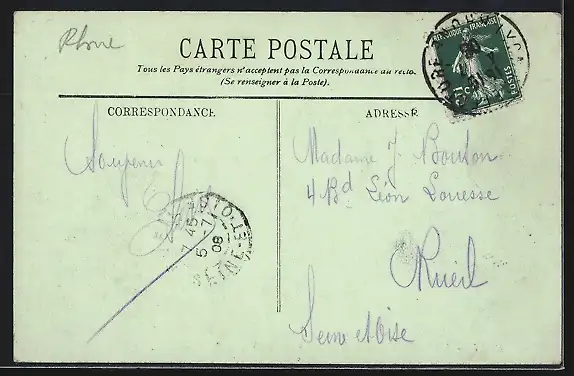 Rhone
CARTE POSTALE
Tous les Pays étrangers n'acceptent pas la Correspondance au recto.
(Se renseigner à la Poste).
CORRESPONDANCE
ADRESSE
REPUBLIQUE FRANÇAISE
POSTES
5c
Souvenir
Madame J. Bouton
4 Bd Léon
Rueil
Seine et Oise
7 45
5 - 7
08
SEINE-ET-O